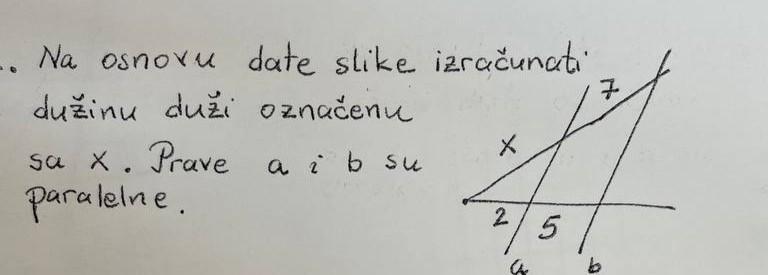 .. Na osnovu date slike izračunati
dužinu duži označenu
sa x. Prave a i b su
paralelne.
7
x
2 5
a b